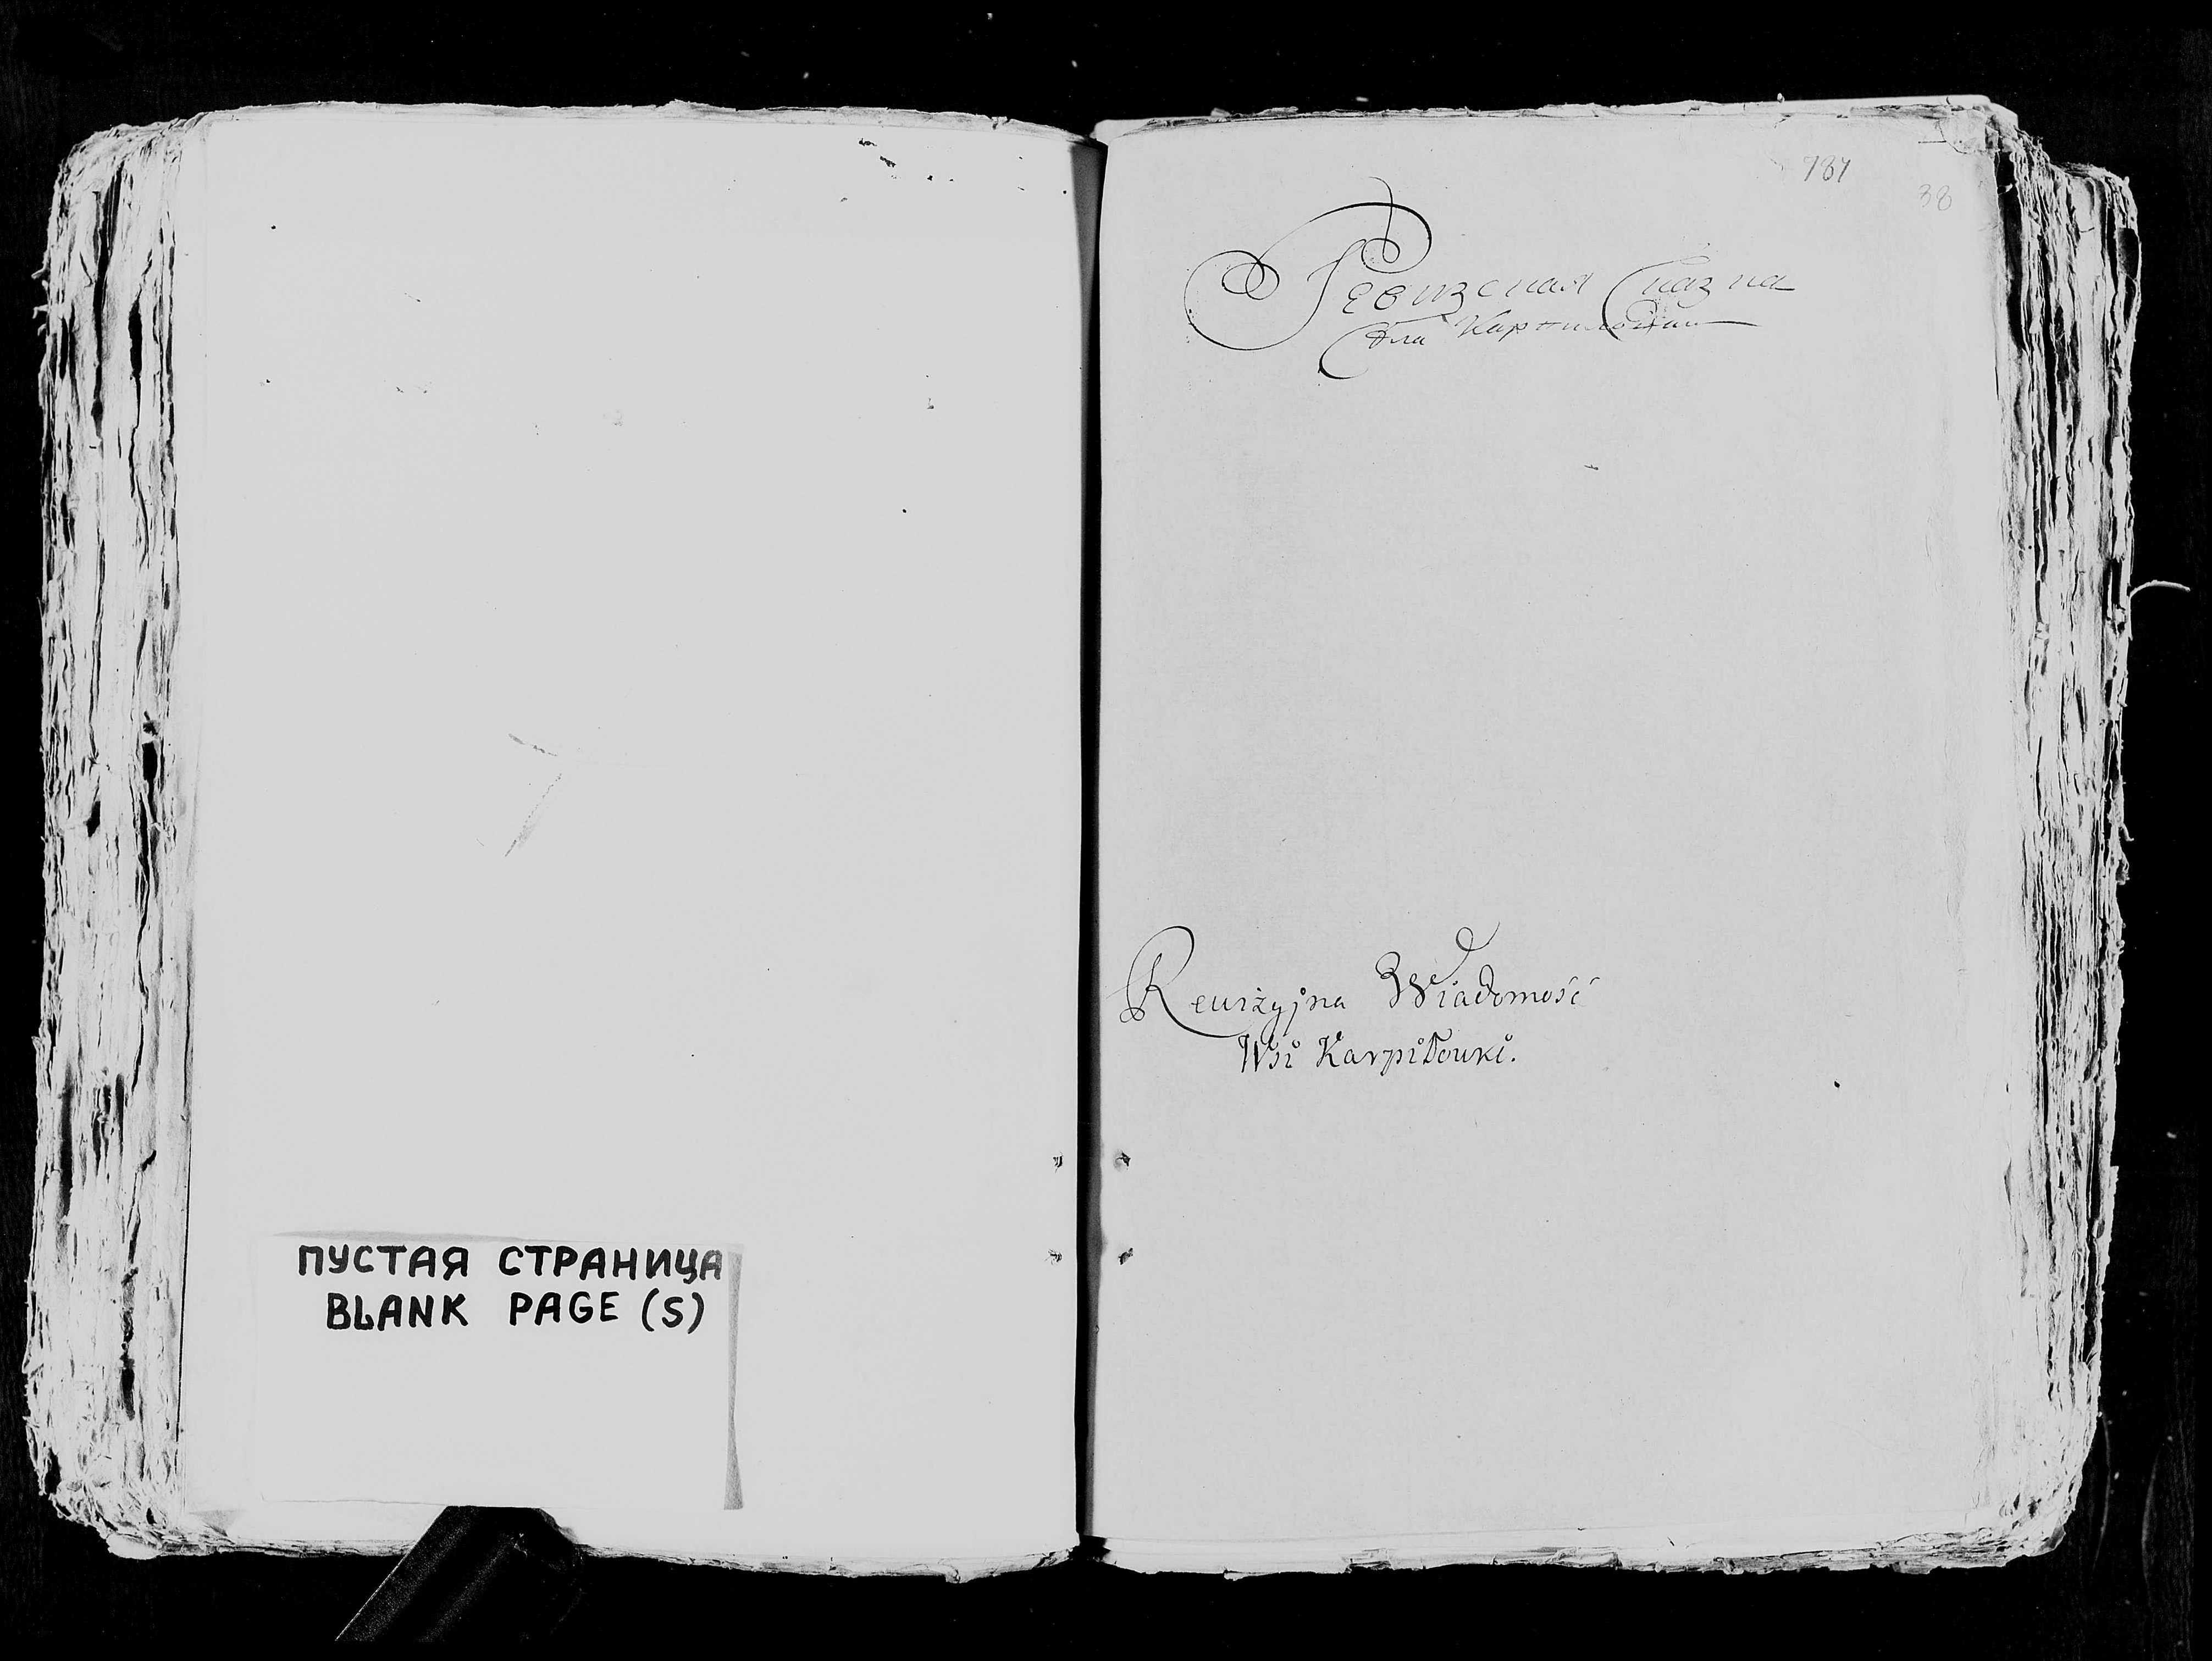 ПУСТАЯ СТРАНИЦА
BLANK PAGE (S)
787
38
Ревизская Сказка
Села Карпиловки
Rewizyjna Wiadomość
Wsi Karpiłowki.